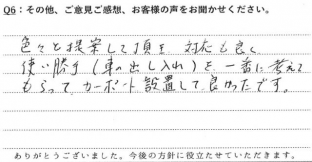 Q6：その他、ご意見ご感想、お客様の声をお聞かせください。
色々と提案して頂き 対応も良く
使い勝手（車の出し入れ）を 一番に考えて
もらって カーポート設置して良かったです。
ありがとうございました。今後の方針に役立たせていただきます。